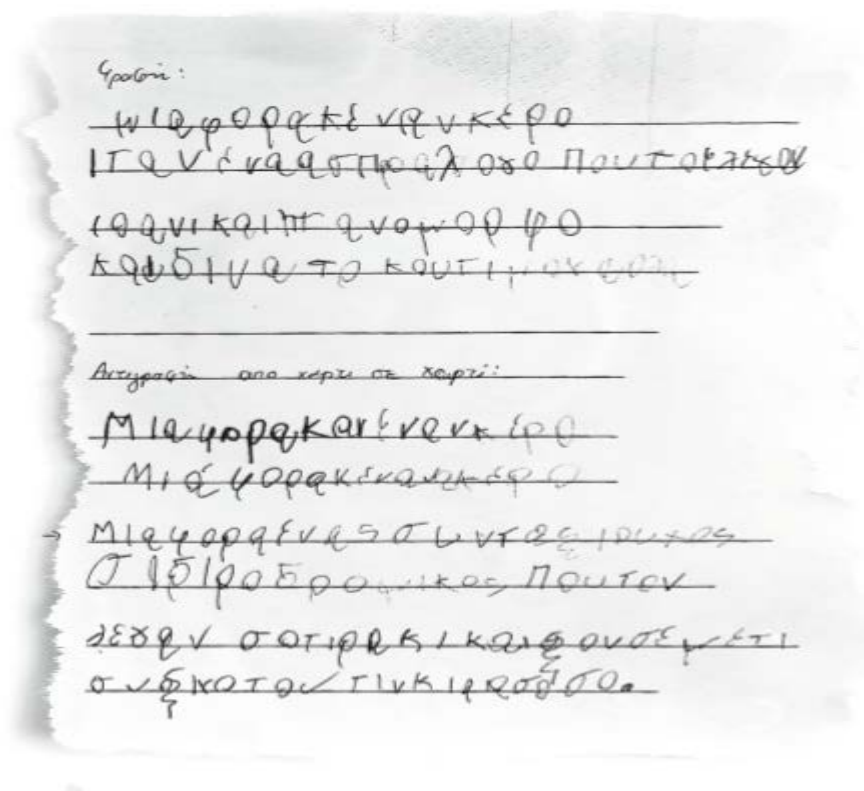 Γραφή:
μιαφορακέ νανκέρο
ΙΤαν έναασπροαλογο Πουτο
ιθανικαιιτανομορφο
καιδινατο καυτι
Αντιγραφή απο χαρτι σε χαρτί:
Μιαφορακαιέναν κέρο
Μιάφορακέναν κέρο
→ Μιαφοραένας συνταξιούχος
Σιδιροδρομικος Πουτον
λέγαν σοτιρακικαιζουσέμετι
συζηγοτου τινκιρασόσο.